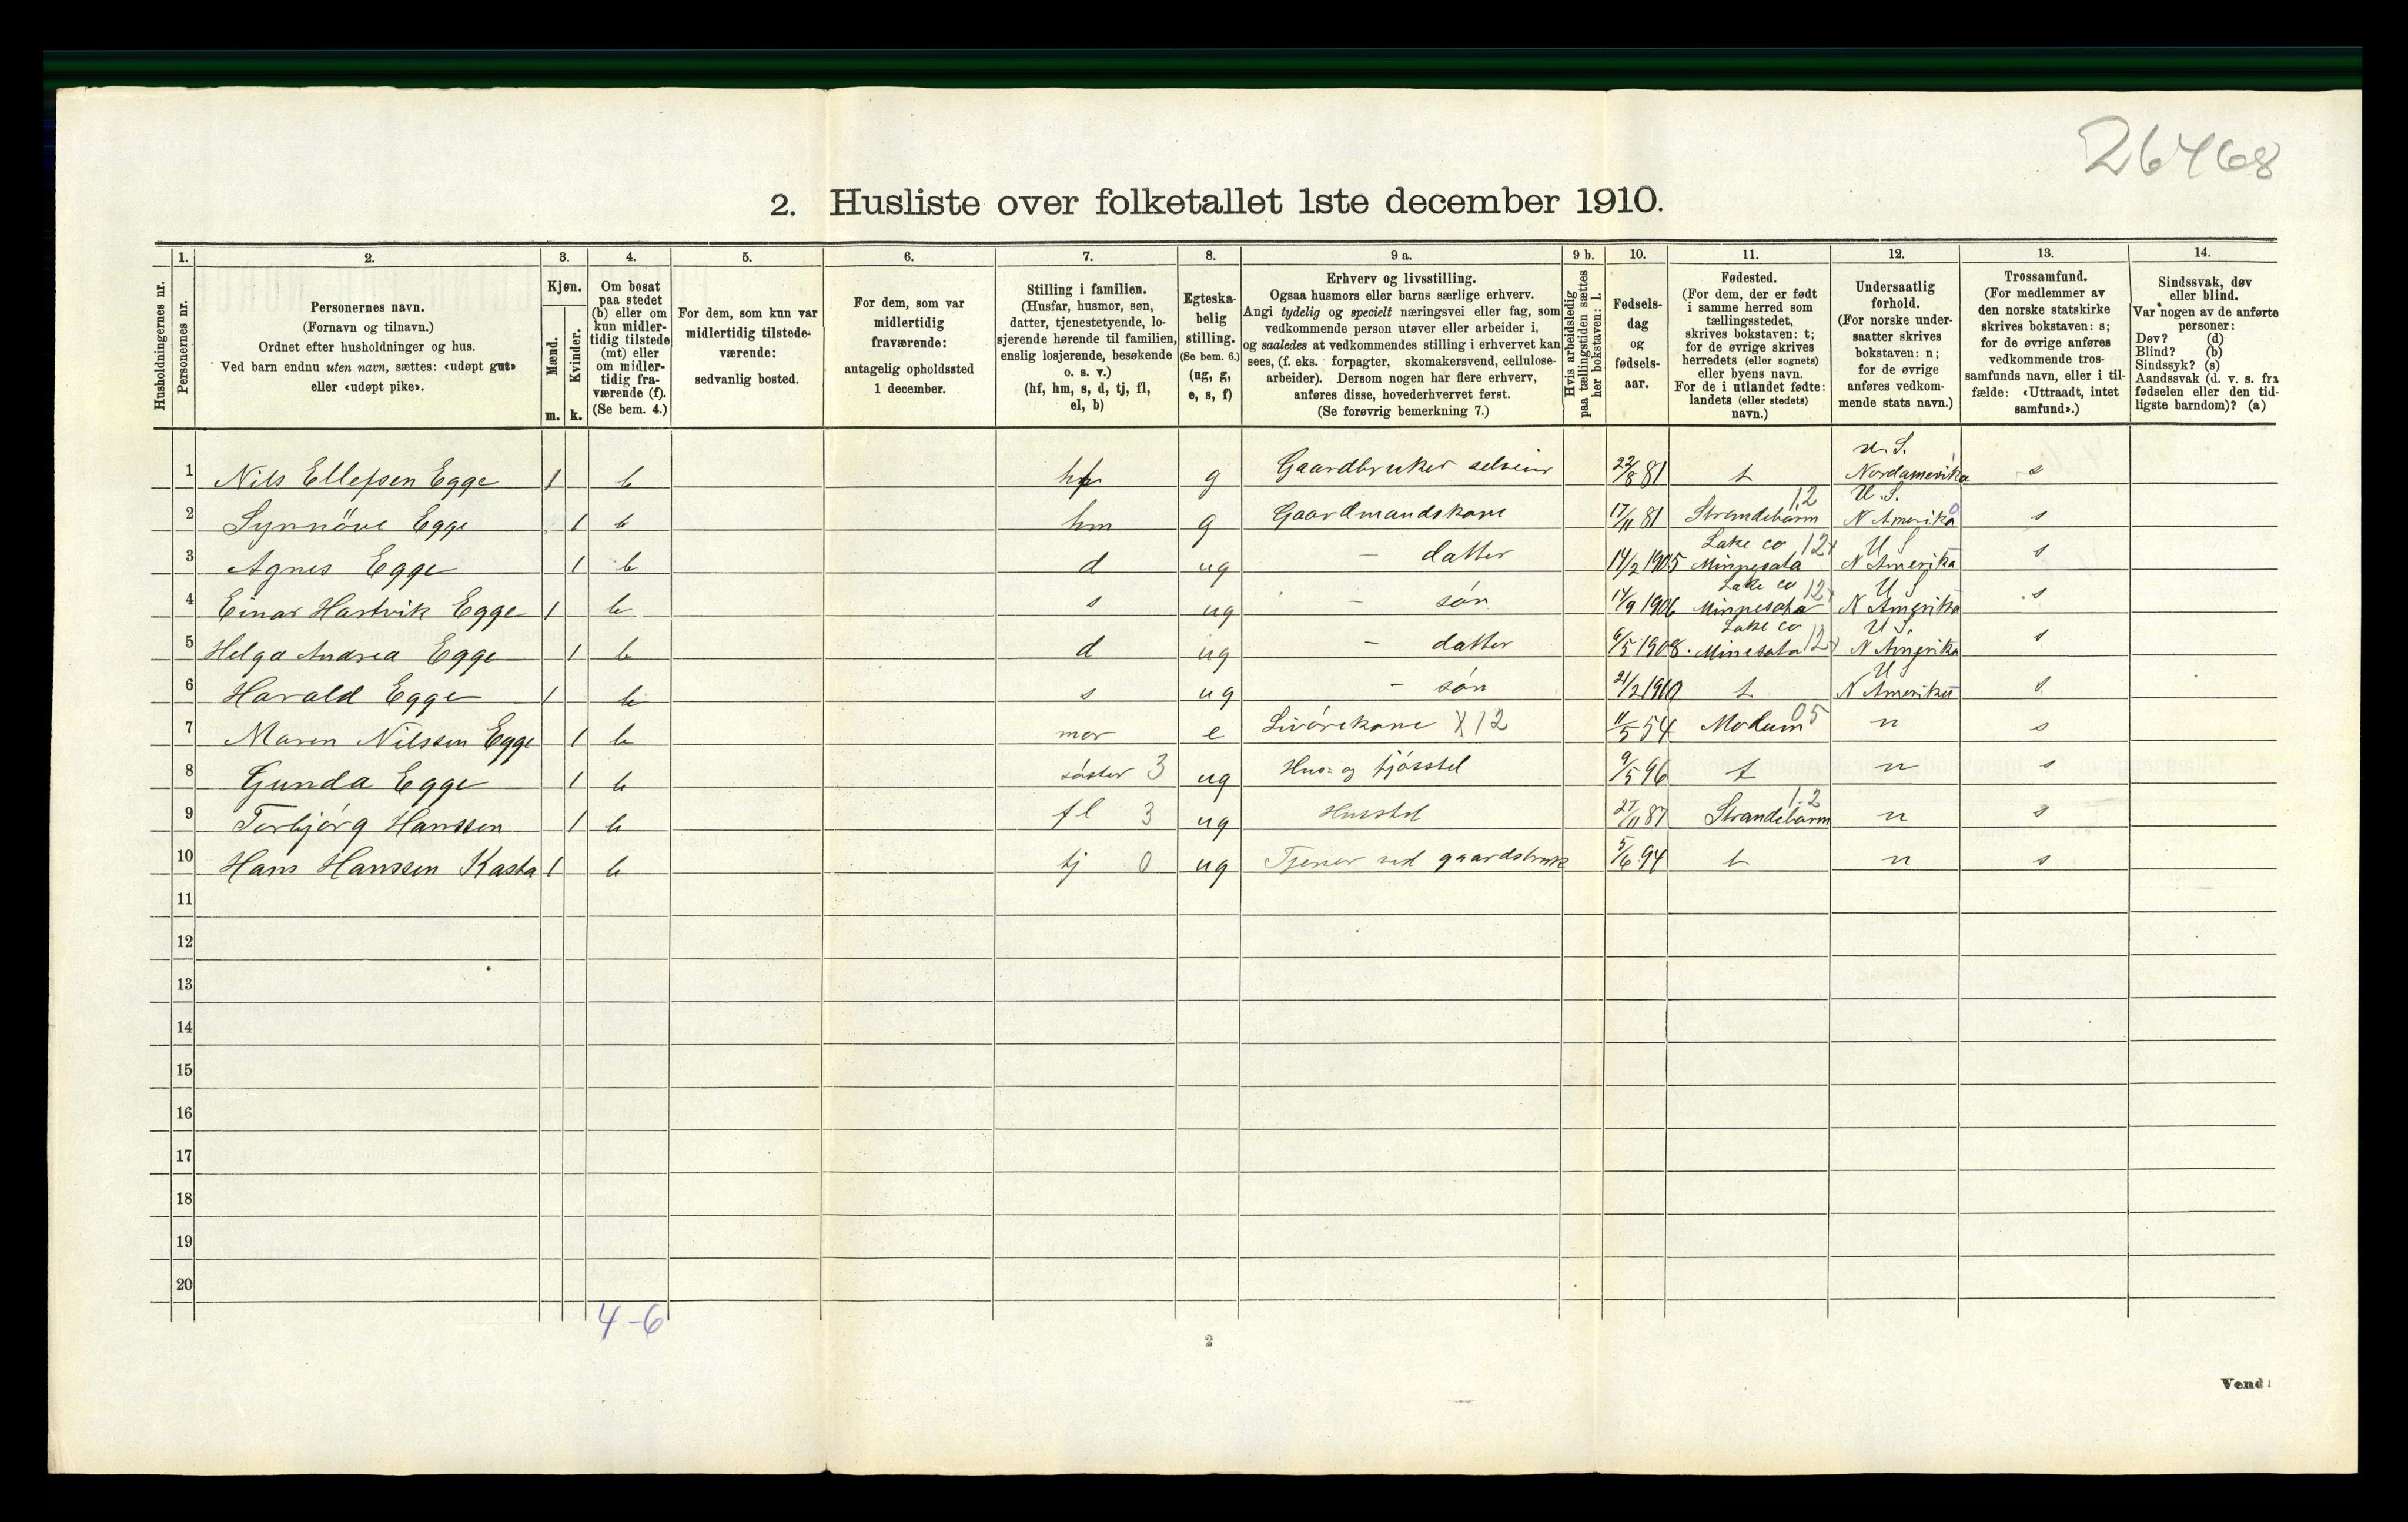 26468
2. Husliste over folketallet 1ste december 1910.
Husholdningernes nr.
1. Personernes nr.
2. Personernes navn. (Fornavn og tilnavn.) Ordnet efter husholdninger og hus. Ved barn endnu uten navn, sættes: «udøpt gut» eller «udøpt pike».
3. Kjøn. Mænd. m. Kvinder. k.
4. Om bosat paa stedet (b) eller om kun midlertidig tilstede (mt) eller om midlertidig fraværende (f). (Se bem. 4.)
5. For dem, som kun var midlertidig tilstedeværende: sedvanlig bosted.
6. For dem, som var midlertidig fraværende: antagelig opholdssted 1 december.
7. Stilling i familien. (Husfar, husmor, søn, datter, tjenestetyende, losjerende hørende til familien, enslig losjerende, besøkende o. s. v.) (hf, hm, s, d, tj, fl, el, b)
8. Egteskabelig stilling. (Se bem. 6.) (ug, g, e, s, f)
9 a. Erhverv og livsstilling. Ogsaa husmors eller barns særlige erhverv. Angi tydelig og specielt næringsvei eller fag, som vedkommende person utøver eller arbeider i, og saaledes at vedkommendes stilling i erhvervet kan sees, (f. eks. forpagter, skomakersvend, cellulosearbeider). Dersom nogen har flere erhverv, anføres disse, hovederhvervet først. (Se forøvrig bemerkning 7.)
9 b. Hvis arbeidsledig paa tællingstiden sættes her bokstaven: l.
10. Fødselsdag og fødselsaar.
11. Fødested. (For dem, der er født i samme herred som tællingsstedet, skrives bokstaven: t; for de øvrige skrives herredets (eller sognets) eller byens navn. For de i utlandet fødte: landets (eller stedets) navn.)
12. Undersaatlig forhold. (For norske undersaatter skrives bokstaven: n; for de øvrige anføres vedkommende stats navn.)
13. Trossamfund. (For medlemmer av den norske statskirke skrives bokstaven: s; for de øvrige anføres vedkommende trossamfunds navn, eller i tilfælde: «Uttraadt, intet samfund».)
14. Sindssvak, døv eller blind. Var nogen av de anførte personer: Døv? (d) Blind? (b) Sindssyk? (s) Aandssvak (d. v. s. fra fødselen eller den tidligste barndom)? (a)
1 Nils Ellefsen Egge 1 b hf g Gaardbruker selveier 22/8 81 t U. S. Nordamerika s
2 Synnöve Egge 1 b hm g Gaardmandskone 17/11 81 Strandebarm 12 U. S. N Amerika 0 s
3 Agnes Egge 1 b d ug – datter 14/2 1905 Lake co Minnesota 12x U S N Amerika s
4 Einar Hartvik Egge 1 b s ug – søn 14/9 1906 Lake co Minnesota 12x U S N Amerika s
5 Helga Andrea Egge 1 b d ug – datter 6/5 1908. Lake co Minesota 12x U S. N Amerika s
6 Harald Egge 1 b s ug – søn 21/2 1910 t U S N Amerika s
7 Maren Nilssen Egge 1 b mor e Livörekone X12 11/5 54 Modum 05 n s
8 Gunda Egge 1 b söster 3 ug Hus= og fjösstel 9/5 96 t n s
9 Torbjörg Hanssen 1 b fl 3 ug Husstel 27/11 87 Strandebarm 12 n s
10 Hans Hanssen Kasta 1 b tj 0 ug Tjener ved gaardsbruk 5/6 94 t n s
11
12
13
14
15
16
17
18
19
20
4-6
2
Vend!